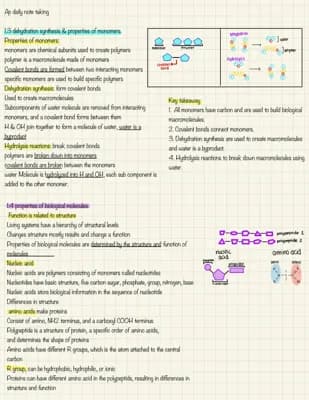 Ap daily note taking
1.3 dehydration synthesis & properties of monomers.
Properties of monomers:
monomers are chemical subunits used to create polymers
polymer is a macromolecule made of monomers
Covalent bonds are formed between two interacting monomers
specific monomers are used to build specific polymers
Dehydration synthesis: form covalent bonds
Used to create macromolecules
Subcomponents of water molecule are removed from interacting
monomers, and a covalent bond forms between them
H & OH join together to form a molecule of water, water is a
byproduct
Hydrolysis reactions: break covalent bonds
polymers are broken down into monomers
covalent bonds are broken between the monomers
water Molecule is hydrolyzed into H and OH, each sub component is
added to the other monomer.
monomer
polymer
covalent
bond
dehydration
water
polymer
hydrolysis
Key takeaway
1. All monomers have carbon and are used to build biological
macromolecules.
2. Covalent bonds connect monomers,
3. Dehydration synthesis are used to create macromolecules
and water is a byproduct
4. Hydrolysis reactions to break down macromolecules using
water.
1.4 properties of biological molecules
Function is related to structure
Living systems have a hierarchy of structural levels
Changes structure mostly results and change a function
Properties of biological molecules are determined by the structure and function of
molecules
Nucleic acid
Nucleic acids are polymers consisting of monomers called nucleotides
Nucleotides have basic structure, five carbon sugar, phosphate, group, nitrogen, base
Nucleic acids store biological information in the sequence of nucleotide
Differences in structure
amino acids make proteins
Consist of amino, NH2 terminus, and a carboxyl COOH terminus
Polypeptide is a structure of protein, a specific order of amino acids,
and determines the shape of proteins
Amino acids have different R groups, which is the atom attached to the central
carbon
R group, can be hydrophobic, hydrophilic, or ionic
Proteins can have different amino acid in the polypeptide, resulting in differences in
structure and function
polypeptide 1
polypeptide 2
nucleic
acid
amino acid